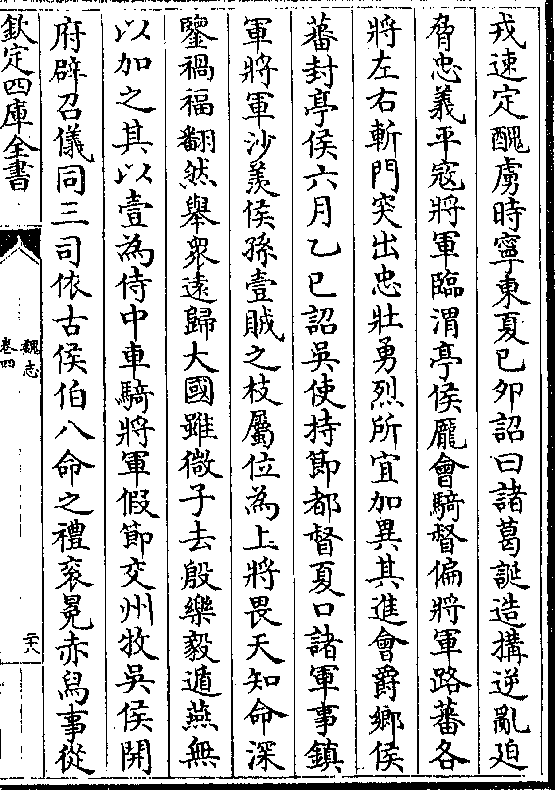 戎速定醜虜時寧東夏己卯詔曰諸葛誕造構逆亂廹
脅忠義平寇將軍臨渭亭侯龎會騎督偏將軍路蕃各
將左右斬門突出忠壯勇烈所宜加異其進會爵鄉侯
蕃封亭侯六月乙巳詔吳使持節都督夏口諸軍事鎮
軍將軍沙羡侯孫壹賊之枝屬位為上將畏天知命深
鑒禍福翻然舉衆遠歸大國雖微子去殷樂毅遁燕無
以加之其以壹為侍中車騎將軍假節交州牧吳侯開
府辟召儀同三司依古侯伯八命之禮衮冕赤舄事從
欽定四庫全書
魏志
卷四
二十八